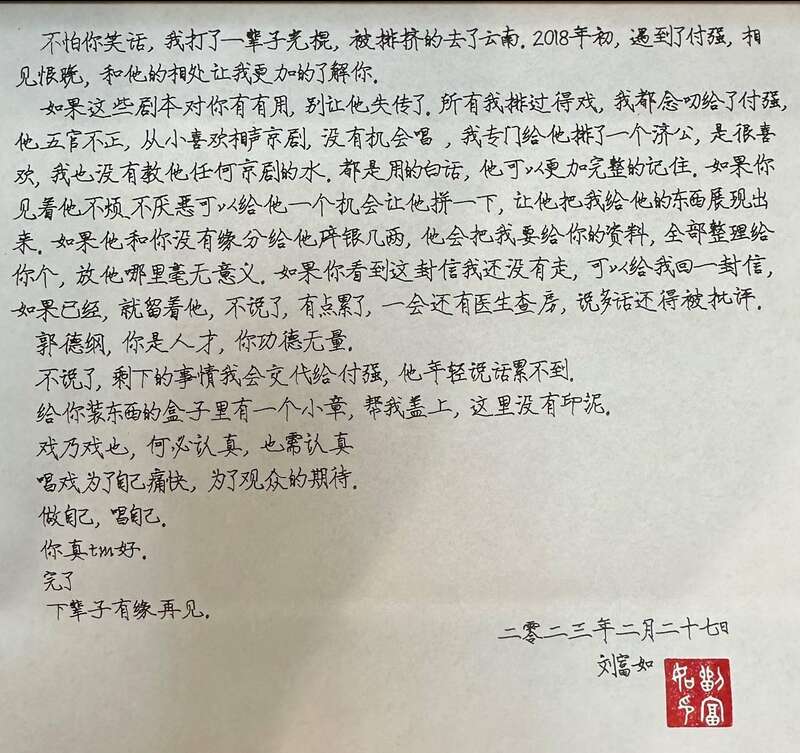 不怕你笑话，我打了一辈子光棍，被排挤的去了云南．2018年初，遇到了付强，相
见恨晚，和他的相处让我更加的了解你．
如果这些剧本对你有有用，别让他失传了．所有我排过得戏，我都念叨给了付强，
他五官不正，从小喜欢相声京剧，没有机会唱，我专门给他排了一个济公，是很喜
欢，我也没有教他任何京剧的水．都是用的白话，他可以更加完整的记住．如果你
见着他不烦不厌恶可以给他一个机会让他拼一下，让他把我给他的东西展现出
来．如果他和你没有缘分给他碎银几两，他会把我要给你的资料，全部整理给
你个，放他哪里毫无意义．如果你看到这封信我还没有走，可以给我回一封信，
如果已经，就留着他，不说了，有点累了，一会还有医生查房，说多话还得被批评．
郭德纲，你是人才，你功德无量．
不说了，剩下的事情我会交代给付强，他年轻说话累不到．
给你装东西的盒子里有一个小章，帮我盖上，这里没有印泥．
戏乃戏也，何必认真，也需认真
唱戏为了自己痛快，为了观众的期待．
做自己，唱自己．
你真tm好．
完了
下辈子有缘再见．
二零二三年二月二十七日
刘富如
劉富如印